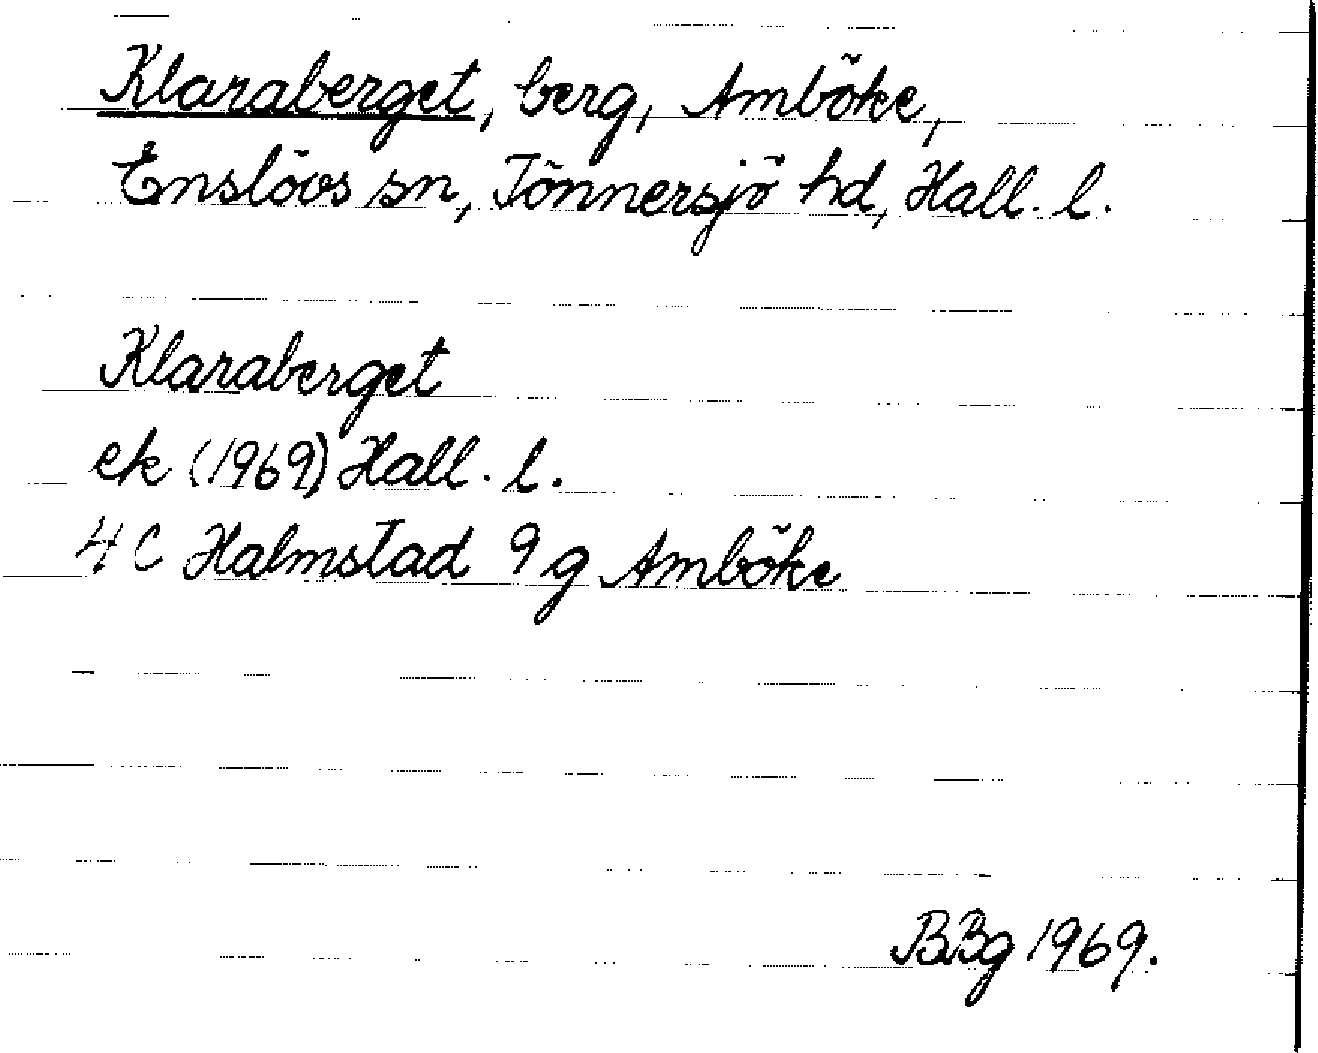 Klaraberget, berg, Amböke,
Enslövs sn, Tönnersjö hd, Hall. l.
Klaraberget
ek (1969) Hall. l.
4C Halmstad 9g Amböke
BBg 1969.